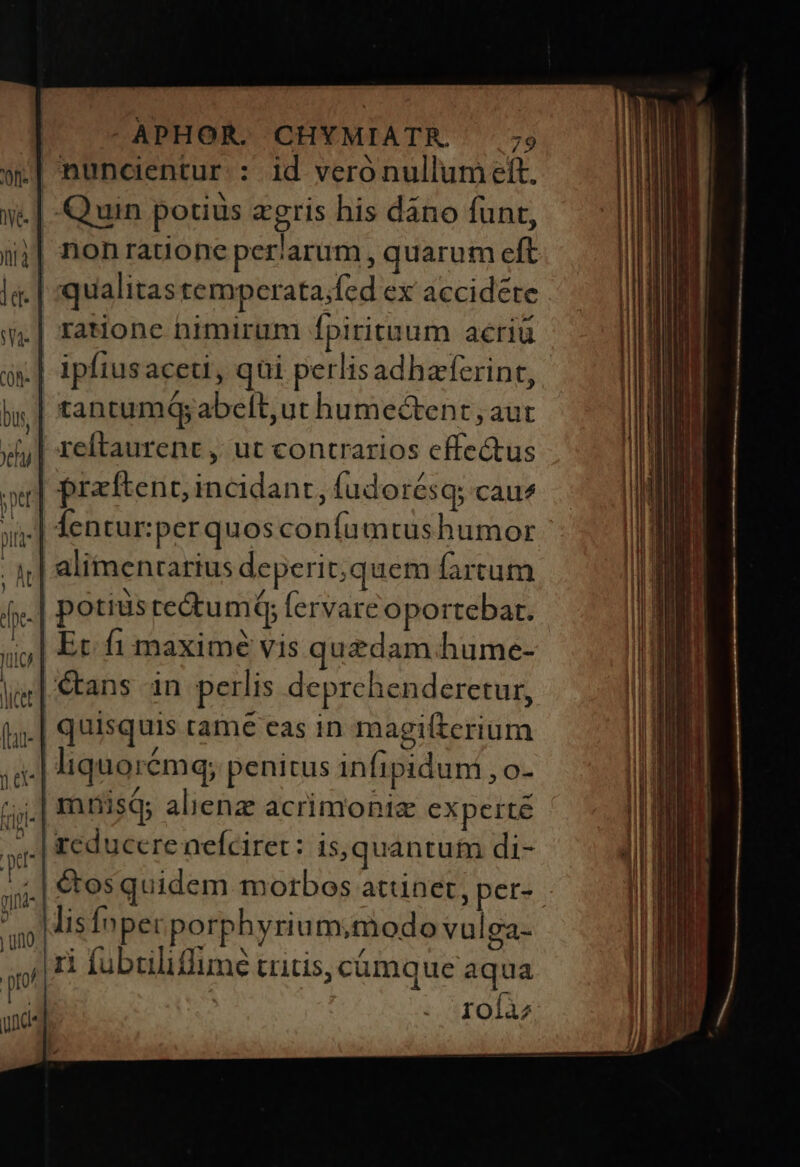 APHOR. CHYMIATR. 79
nuncientur: id verò nullum eſt.
Quin potiùs ægris his dāno ſunt,
non ratione perlarum, quarum eſt
qualitas temperata, ſed ex accidēte
ratione nimirum ſpirituum acriū
ipſius aceti, qui perlis adhæſerint,
tantumq́; abeſt, ut humectent, aut
reſtaurent, ut contrarios effectus
præſtent, incidant, ſudorésq; cau-
ſentur: per quos conſumtus humor
alimentarius deperit, quem ſartum
potiùs tectumq́; ſervare oportebat.
Et ſi maximè vis quædam hume-
ctans in perlis deprehenderetur,
quisquis tamē eas in magiſterium
liquorémq; penitus inſipidum, o-
mnisq́; alienæ acrimoniæ expertē
reducere neſciret: is, quantum di-
ctos quidem morbos attinet, per-
lis ſuper porphyrium, modo vulga-
ri ſubtiliſſimè tritis, cùmque aqua
roſa-